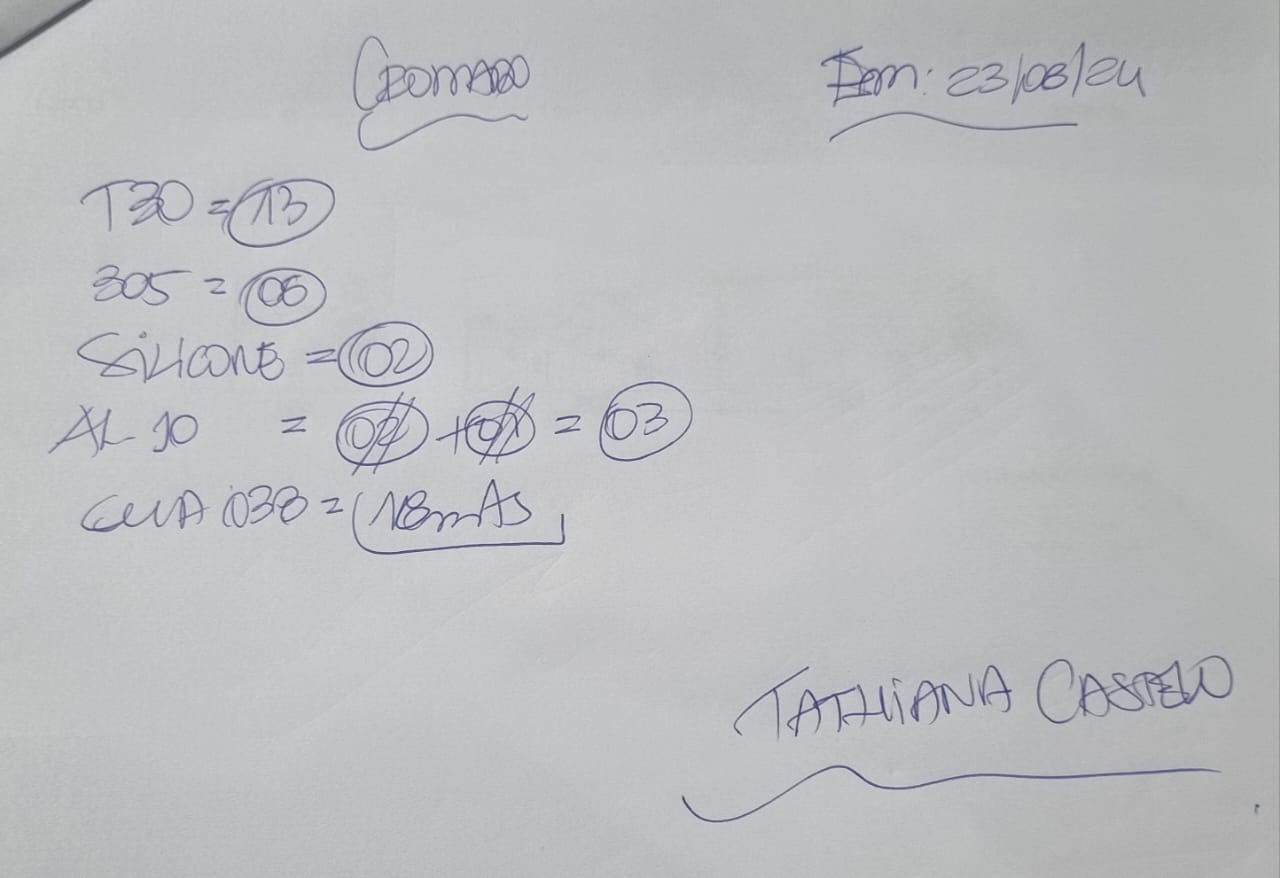 CROMADO
Em: 23/08/24
T30 = 13
305 = 06
SILICONE = 02
AL 10 = 02 + 01 = 03
GUIA 038 = 18mAs
TATHIANA CASTELO